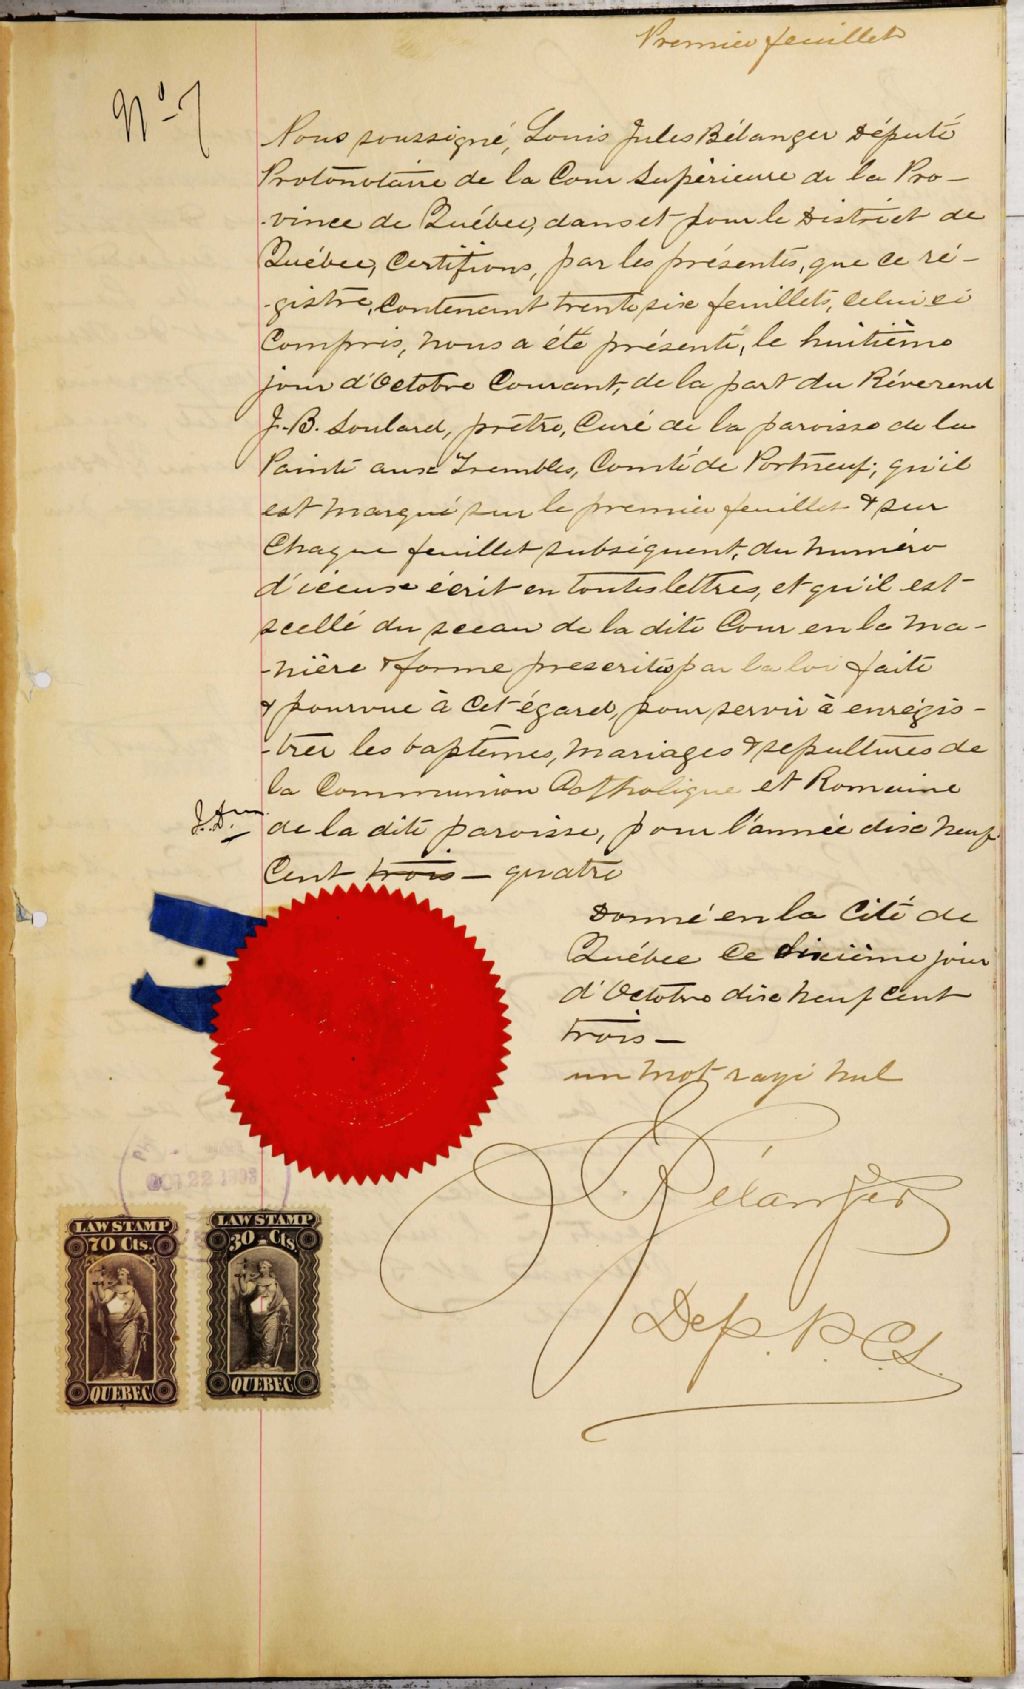 Premier feuillet
No 7
Nous soussigné, Louis Jules Bélanger Député
Protonotaire de la Cour Supérieure de la Pro-
-vince de Québec, dans et pour le District de
Québec, Certifions, par les présentes, que ce ré-
-gistre, contenant trente six feuillets, celui ci
Compris, nous a été présenté, le huitième
jour d'Octobre Courant, de la part du Révérend
J. B. Soulard, prêtre, Curé de la paroisse de la
Pointe aux Trembles, Comté de Portneuf; qu'il
est marqué sur le premier feuillet & sur
Chaque feuillet subséquent, du numéro
d'iceux écrit en toutes lettres, et qu'il est
scellé du sceau de la dite Cour en la ma-
-nière & forme prescrites par la loi faite
& pourvue à cet égard, pour servir à enrégis-
-trer les baptêmes, mariages & sépultures de
la Communion Catholique et Romaine
de la dite paroisse, pour l'année dix neuf
Cent trois - quatre
Donné en la Cité de
Québec ce dixième jour
d'Octobre dix neuf cent
trois -
un mot rayé nul
Bélanger
Dep. P. C. S.
OCT 22 1903
LAW STAMP
70 Cts.
QUEBEC
LAW STAMP
30 Cts
QUEBEC